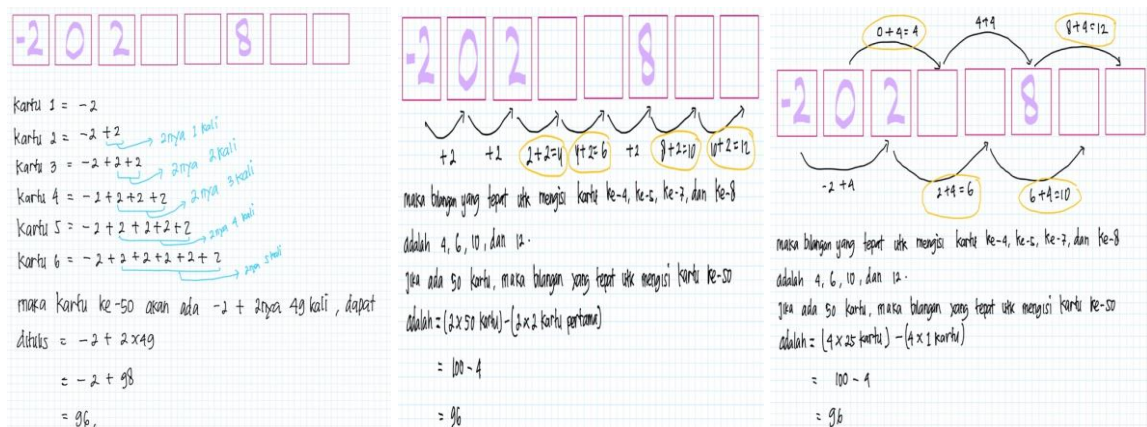 -2 0 2 8
Kartu 1 = -2
Kartu 2 = -2 +2 → 2nya 1 kali
Kartu 3 = -2 +2+2 → 2nya 2 kali
Kartu 4 = -2 +2 +2 +2 → 2nya 3 kali
Kartu 5 = -2 + 2 + 2 +2 +2 → 2nya 4 kali
Kartu 6 = -2 + 2 +2 +2 +2 + 2 → 2nya 5 kali
maka kartu ke-50 akan ada -2 + 2nya 49 kali, dapat
ditulis = -2 + 2×49
= -2 + 98
= 96,
-2 0 2 8
+2 +2 2+2=4 4+2=6 +2 8+2=10 10+2=12
maka bilangan yang tepat utk mengisi kartu ke-4, ke-5, ke-7, dan ke-8
adalah 4, 6, 10, dan 12.
Jika ada 50 kartu, maka bilangan yang tepat utk mengisi kartu ke-50
adalah = (2 × 50 kartu) - (2 × 2 kartu pertama)
= 100 - 4
= 96
0+4=4 4+4 8+4=12
-2 0 2 8
-2 +4 2+4=6 6+4=10
maka bilangan yang tepat utk mengisi kartu ke-4, ke-5, ke-7, dan ke-8
adalah 4, 6, 10, dan 12.
Jika ada 50 kartu, maka bilangan yang tepat utk mengisi kartu ke-50
adalah = (4 × 25 kartu) - (4 × 1 kartu)
= 100 - 4
= 96